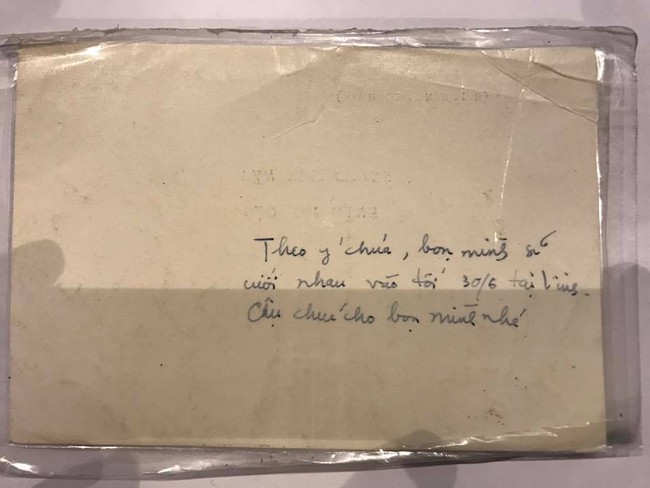 Theo ý chúa, bọn mình sẽ
cưới nhau vào tối 30/6 tại
Cậu chuć cho bọn mình nhé